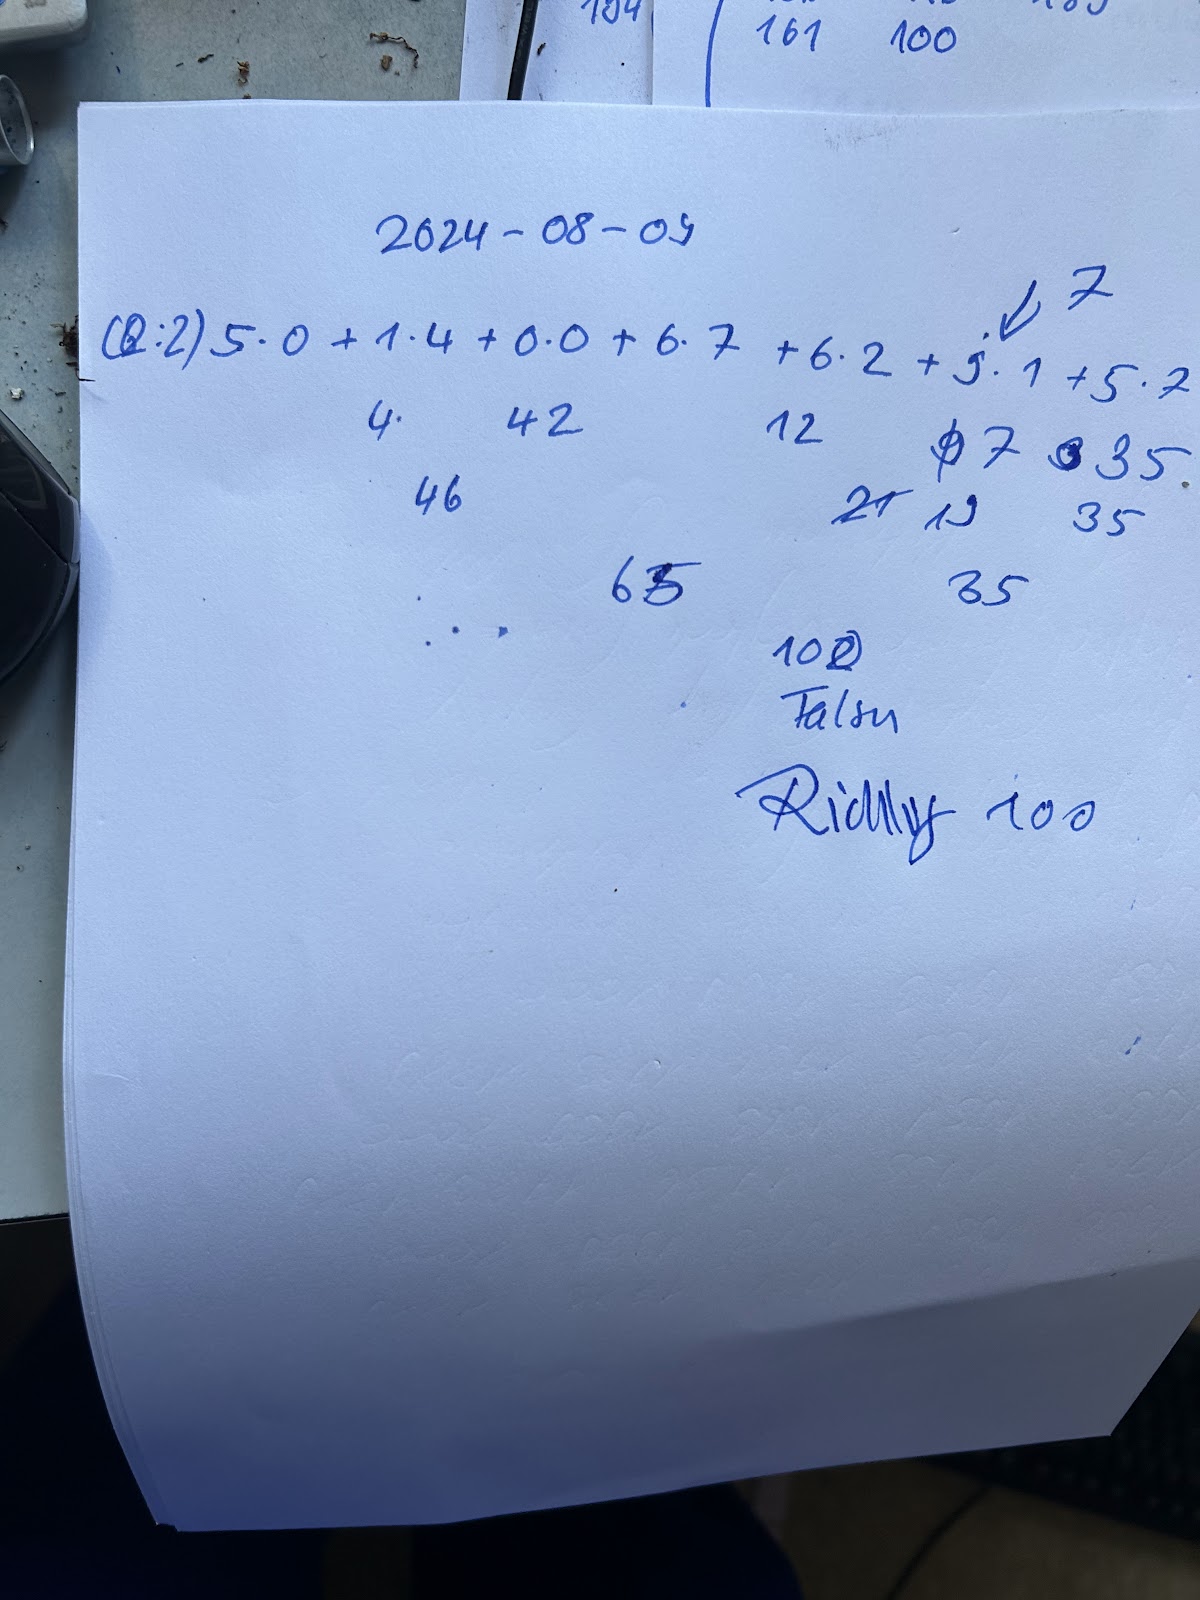 194
161 100
2024-08-09
7
(2:2) 5·0 + 1·4 + 0·0 + 6·7 + 6·2 + j·1 + 5·7
4· 42 12 7 35.
46 21 19 35
65 35
100
Falsu
100